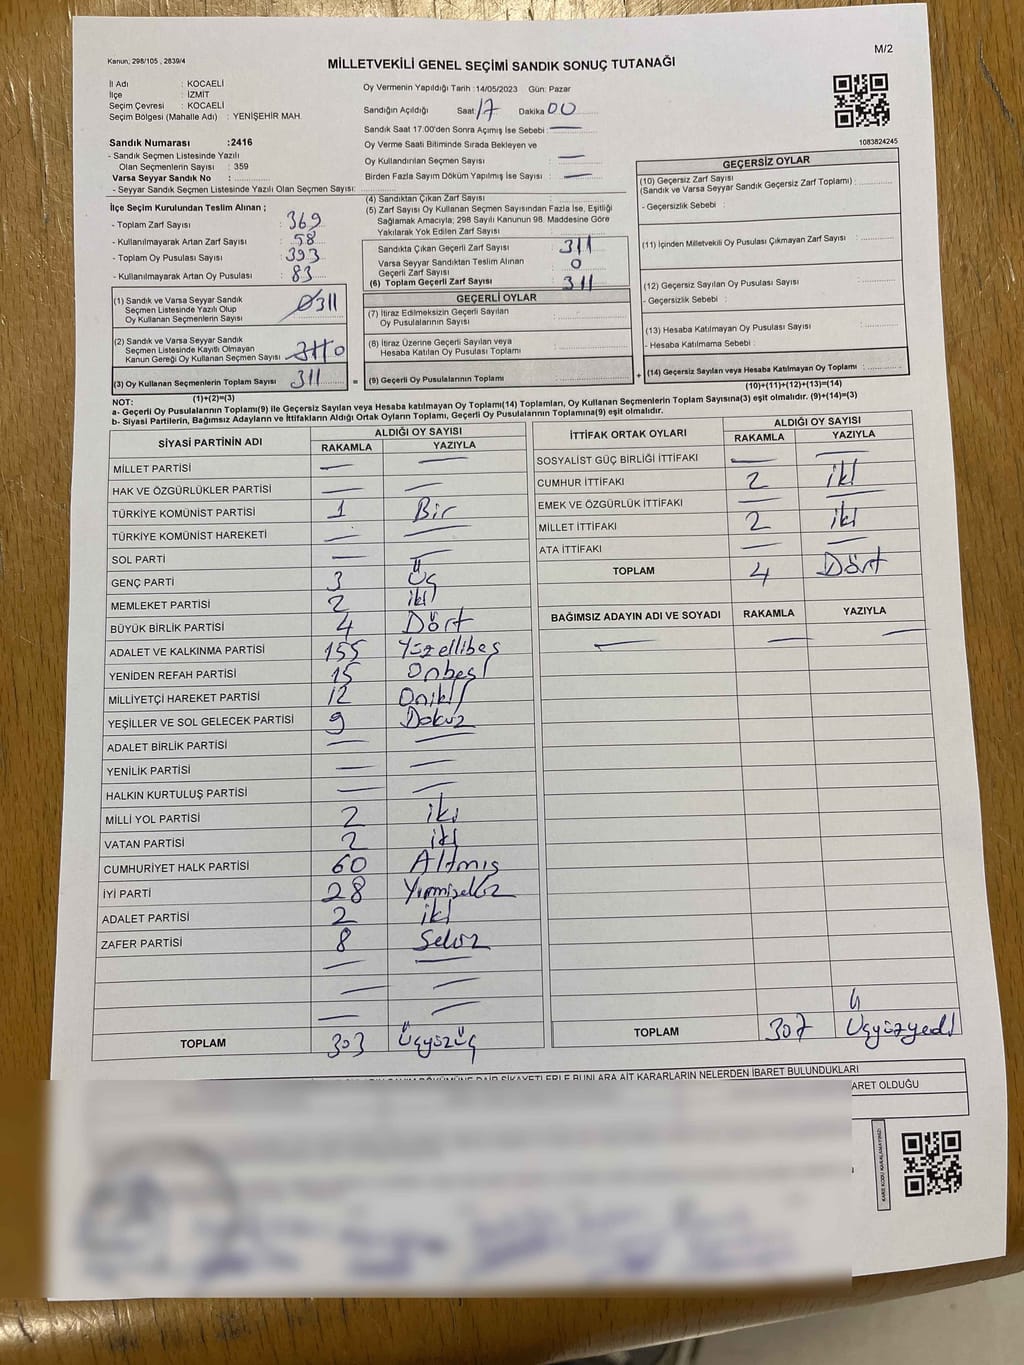 Kanun; 298/105 , 2839/4
M/2
MİLLETVEKİLİ GENEL SEÇİMİ SANDIK SONUÇ TUTANAĞI
İl Adı : KOCAELİ
İlçe : İZMİT
Seçim Çevresi : KOCAELİ
Seçim Bölgesi (Mahalle Adı) : YENİŞEHİR MAH.
Sandık Numarası :2416
- Sandık Seçmen Listesinde Yazılı
Olan Seçmenlerin Sayısı : 359
Varsa Seyyar Sandık No :
- Seyyar Sandık Seçmen Listesinde Yazılı Olan Seçmen Sayısı:
Oy Vermenin Yapıldığı Tarih :14/05/2023 Gün: Pazar
Sandığın Açıldığı Saat: 17 Dakika 00
Sandık Saat 17.00'den Sonra Açımış İse Sebebi : —
Oy Verme Saati Bitiminde Sırada Bekleyen ve
Oy Kullandırılan Seçmen Sayısı : —
Birden Fazla Sayım Döküm Yapılmış İse Sayısı : —
1083824245
İlçe Seçim Kurulundan Teslim Alınan ;
- Toplam Zarf Sayısı : 369
- Kullanılmayarak Artan Zarf Sayısı : 58
- Toplam Oy Pusulası Sayısı : 393
- Kullanılmayarak Artan Oy Pusulası : 83
(1) Sandık ve Varsa Seyyar Sandık
Seçmen Listesinde Yazılı Olup
Oy Kullanan Seçmenlerin Sayısı : 311
(2) Sandık ve Varsa Seyyar Sandık
Seçmen Listesinde Kayıtlı Olmayan
Kanun Gereği Oy Kullanan Seçmen Sayısı : 0
(3) Oy Kullanan Seçmenlerin Toplam Sayısı : 311
(1)+(2)=(3)
(4) Sandıktan Çıkan Zarf Sayısı :
(5) Zarf Sayısı Oy Kullanan Seçmen Sayısından Fazla İse, Eşitliği
Sağlamak Amacıyla; 298 Sayılı Kanunun 98. Maddesine Göre
Yakılarak Yok Edilen Zarf Sayısı :
Sandıkta Çıkan Geçerli Zarf Sayısı : 311
Varsa Seyyar Sandıktan Teslim Alınan
Geçerli Zarf Sayısı : 0
(6) Toplam Geçerli Zarf Sayısı : 311
GEÇERLİ OYLAR
(7) İtiraz Edilmeksizin Geçerli Sayılan
Oy Pusulalarının Sayısı :
(8) İtiraz Üzerine Geçerli Sayılan veya
Hesaba Katılan Oy Pusulası Toplamı :
= (9) Geçerli Oy Pusulalarının Toplamı :
GEÇERSİZ OYLAR
(10) Geçersiz Zarf Sayısı
(Sandık ve Varsa Seyyar Sandık Geçersiz Zarf Toplamı) :
- Geçersizlik Sebebi :
(11) İçinden Milletvekili Oy Pusulası Çıkmayan Zarf Sayısı :
(12) Geçersiz Sayılan Oy Pusulası Sayısı :
- Geçersizlik Sebebi :
(13) Hesaba Katılmayan Oy Pusulası Sayısı :
- Hesaba Katılmama Sebebi :
+ (14) Geçersiz Sayılan veya Hesaba Katılmayan Oy Toplamı :
(10)+(11)+(12)+(13)=(14)
NOT:
a- Geçerli Oy Pusulalarının Toplamı(9) ile Geçersiz Sayılan veya Hesaba katılmayan Oy Toplamı(14) Toplamları, Oy Kullanan Seçmenlerin Toplam Sayısına(3) eşit olmalıdır. (9)+(14)=(3)
b- Siyasi Partilerin, Bağımsız Adayların ve İttifakların Aldığı Ortak Oyların Toplamı, Geçerli Oy Pusulalarının Toplamına(9) eşit olmalıdır.
SİYASİ PARTİNİN ADI ALDIĞI OY SAYISI
RAKAMLA YAZIYLA
MİLLET PARTİSİ — —
HAK VE ÖZGÜRLÜKLER PARTİSİ — —
TÜRKİYE KOMÜNİST PARTİSİ 1 Bir
TÜRKİYE KOMÜNİST HAREKETİ — —
SOL PARTİ — —
GENÇ PARTİ 3 Üç
MEMLEKET PARTİSİ 2 iki
BÜYÜK BİRLİK PARTİSİ 4 Dört
ADALET VE KALKINMA PARTİSİ 155 Yüzellibeş
YENİDEN REFAH PARTİSİ 15 Onbeş
MİLLİYETÇİ HAREKET PARTİSİ 12 Oniki
YEŞİLLER VE SOL GELECEK PARTİSİ 9 Dokuz
ADALET BİRLİK PARTİSİ — —
YENİLİK PARTİSİ — —
HALKIN KURTULUŞ PARTİSİ — —
MİLLİ YOL PARTİSİ 2 iki
VATAN PARTİSİ 2 iki
CUMHURİYET HALK PARTİSİ 60 Altmış
İYİ PARTİ 28 Yirmisekiz
ADALET PARTİSİ 2 iki
ZAFER PARTİSİ 8 Sekiz
— —
— —
— —
TOPLAM 303 Üçyüzüç
İTTİFAK ORTAK OYLARI ALDIĞI OY SAYISI
RAKAMLA YAZIYLA
SOSYALİST GÜÇ BİRLİĞİ İTTİFAKI — —
CUMHUR İTTİFAKI 2 iki
EMEK VE ÖZGÜRLÜK İTTİFAKI — —
MİLLET İTTİFAKI 2 iki
ATA İTTİFAKI — —
TOPLAM 4 Dört
BAĞIMSIZ ADAYIN ADI VE SOYADI RAKAMLA YAZIYLA
— — —
TOPLAM 307 Üçyüzyedi
DÖKÜMÜNE DAİR ŞİKAYETLERLE BUNLARA AİT KARARLARIN NELERDEN İBARET BULUNDUKLARI
ARET OLDUĞU
KARE KODU KARALAMAYINIZ!